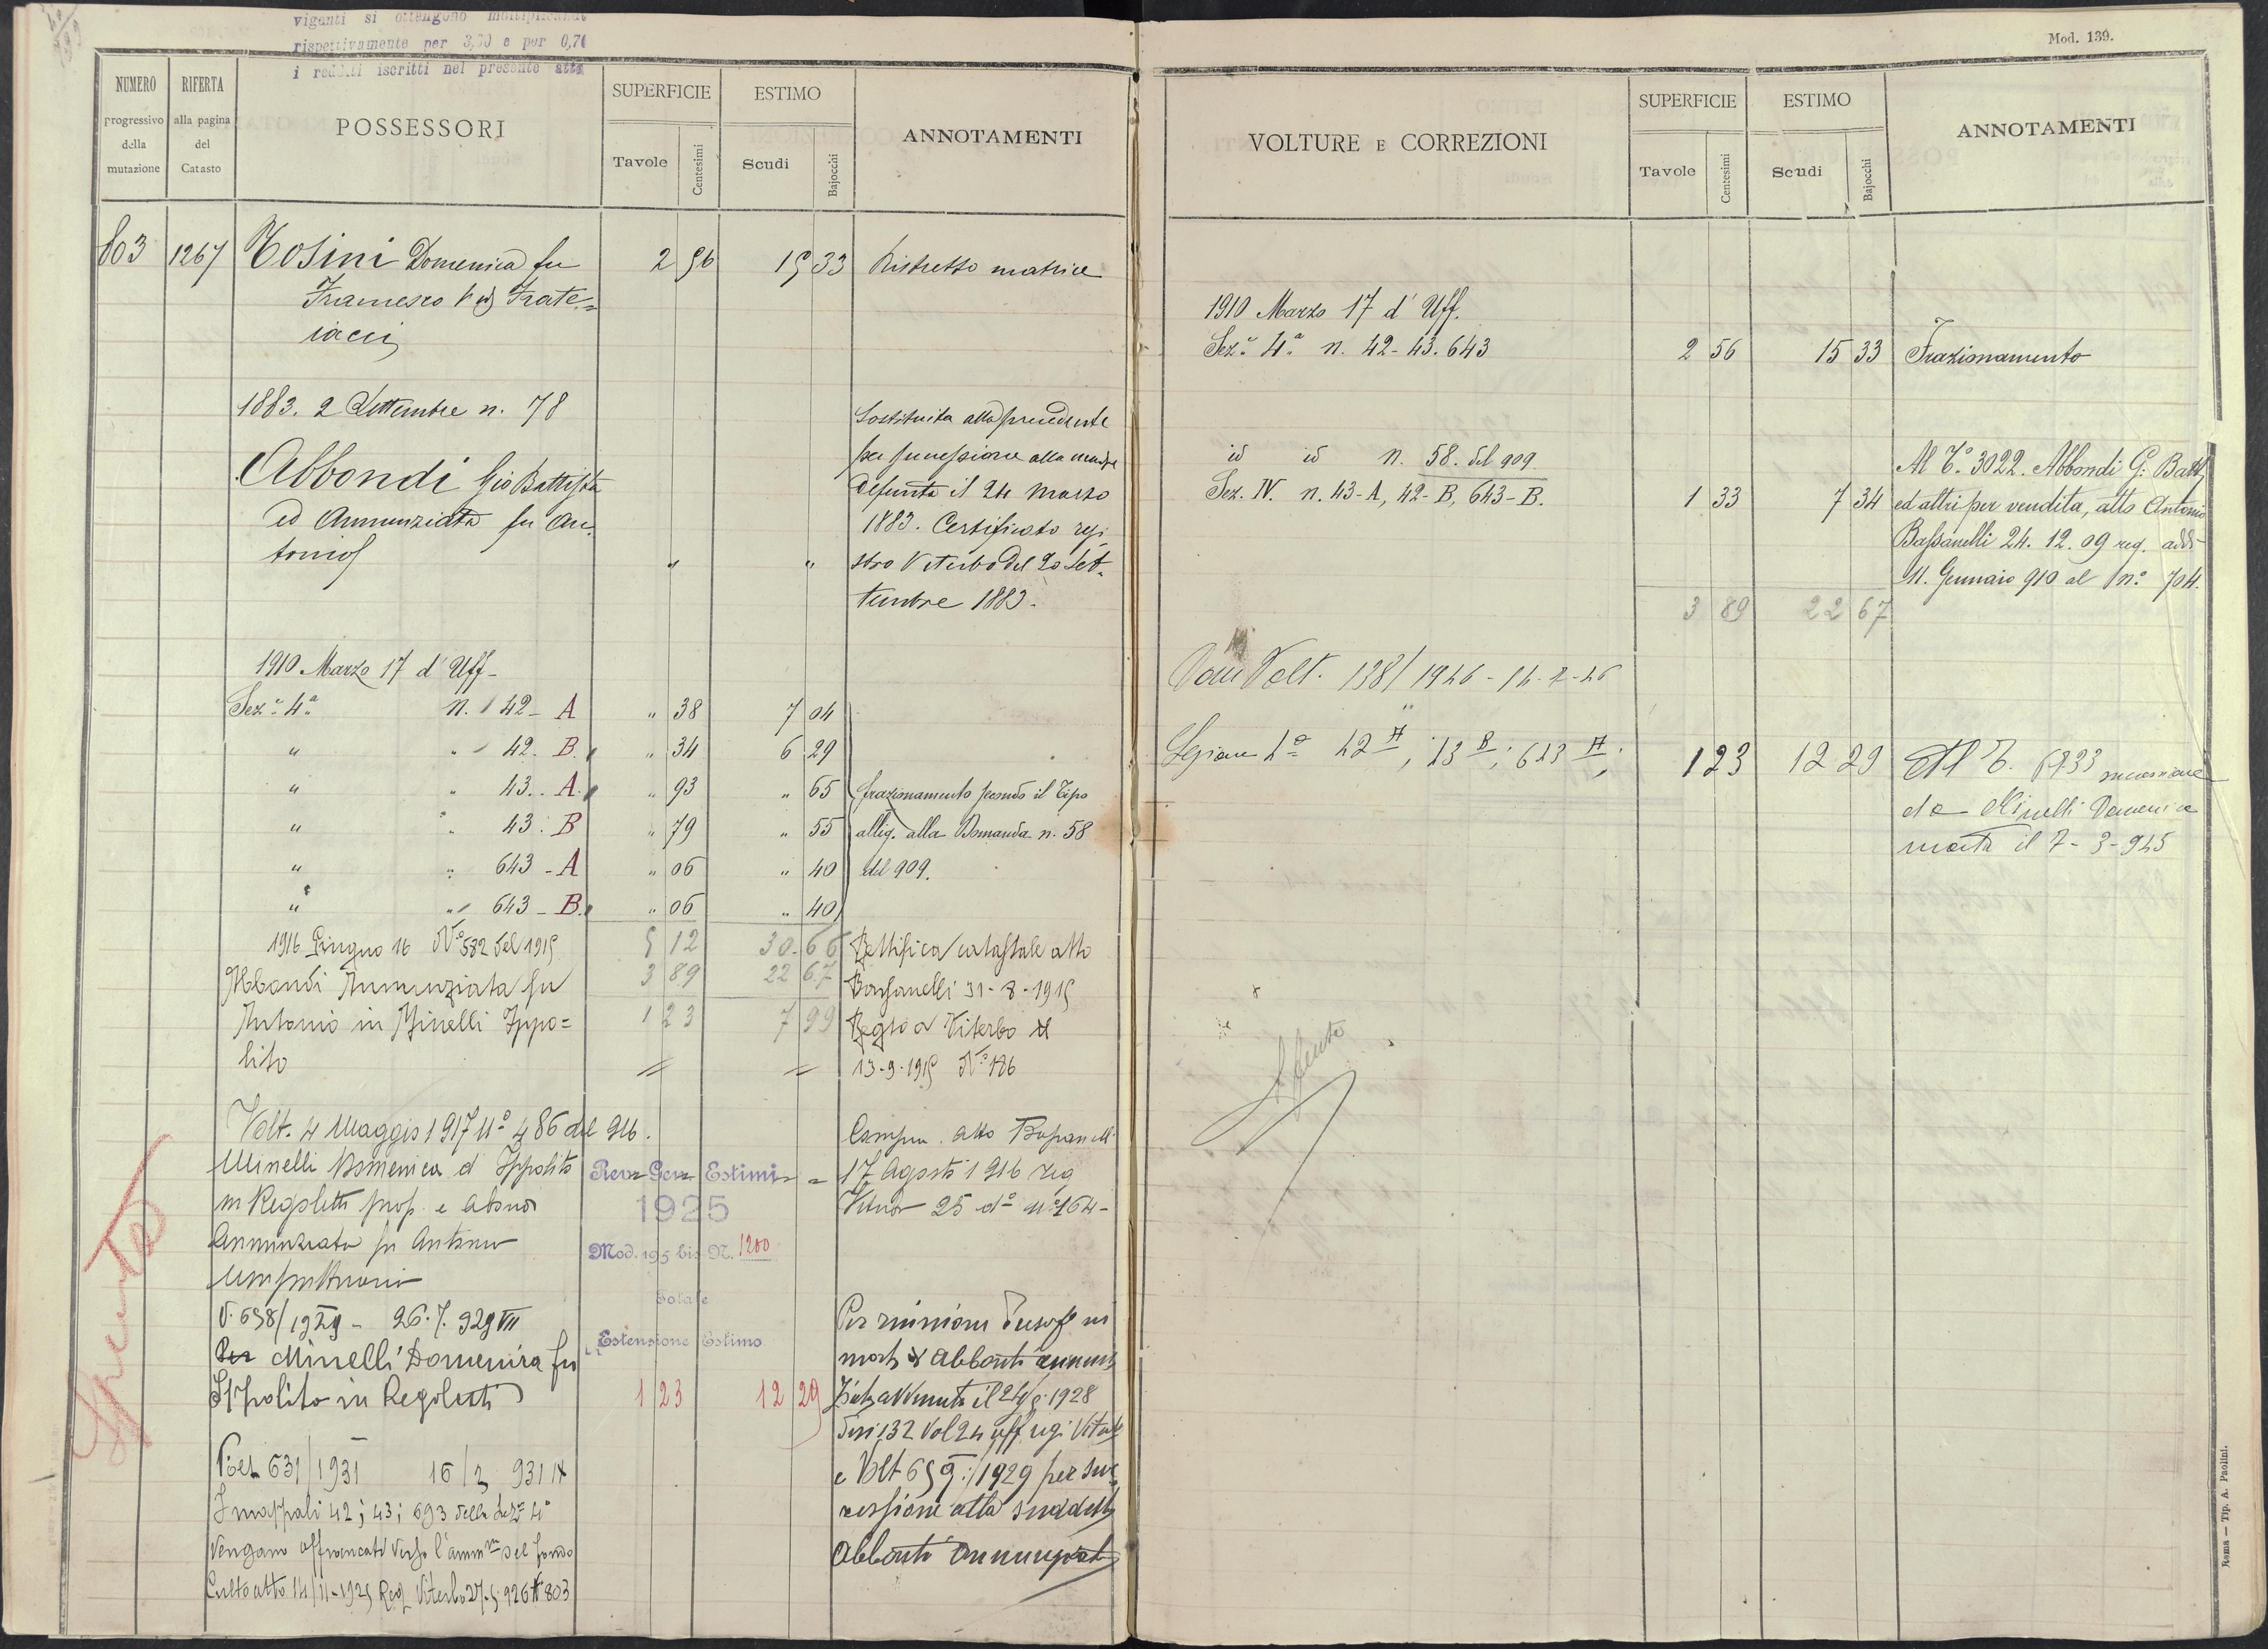 viganti si ottengono moltiplicando
rispettivamente per 3,30 e per 0,70
i redditi iscritti nel presente atto
NUMERO progressivo della mutazione
RIFERTA alla pagina del Catasto
POSSESSORI
SUPERFICIE
Tavole Centesimi
ESTIMO
Scudi Bajocchi
ANNOTAMENTI
803 1267 Tosini Domenica fu 2 56 15 33 Ristretto matrice
Francesco Frate=
iacci
1883. 2 Settembre n. 78
Abbondi Gio Battista
ed Annunziata fu An-
tonio " "
Sostituita alla precedente
per successione alla madre
defunta il 24 Marzo
1883. Certificato regi
stro Viterbo del 20 Set-
tembre 1883.
1910 Marzo 17 d' Uff-
Sez. 4.a n. 42 - A " 38 7 04
" " 42. B. " 34 6 29
" " 43. A. " 93 " 65
" " 43. B " 79 " 55
" " 643 - A " 06 " 40
" " 643 - B. " 06 " 40
frazionamento secondo il Tipo
allig. alla Domanda n. 58
del 909.
5 12 30.66
3 89 22 67
1 23 7 99
1916 Giugno 16 N° 582 del 1915
Abbondi Annunziata fu
Antonio in Minelli Ippo=
lito
Rettifica catastale atto
Bassanelli 31-8-1915
Regto a Viterbo il
13-9-1915 N° 186
Volt. 4 Maggio 1917 N° 486 del 916.
Minelli Domenica d' Ippolito
in Regoletti prop. e
Annunziata fu Antonio
Rev Gen Estimi
1925
Mod. 195 bis N. 1200
Totale
Estensione Estimo
atto
17 Agosto 1916 reg
25 d° n° 164-
V. 658/1929 - 26.7.929 VII
Minelli Domenica fu
Ippolito in Regoletti 1 23 12 29
Per riunione
Abbonti
avvenuta il 1928
132 Vol 24 uff regi
e Volt 659:/1929 per suc
cessione alla suddetta
Abbonti Annunziata
631/1931 931 IX
I mappali 42; 43; 693 della Sez 4°
vengano affrancati verso l'amm.ne del fondo
Culto atto 14/11-1925 Reg Viterbo N 803
Spenta
Mod. 139.
VOLTURE E CORREZIONI
SUPERFICIE
Tavole Centesimi
ESTIMO
Scudi Bajocchi
ANNOTAMENTI
1910 Marzo 17 d' Uff.
Sez. 4.a n. 42-43.643 2 56 15 33 Frazionamento
id id n. 58. del 909
Sez. IV. n. 43-A, 42-B, 643-B. 1 33 7 34
Al T.° 3022. Abbondi G. Batt
ed altri per vendita, atto Antonio
Bassanelli 24.12.09 reg. addi
11. Gennaio 910 al n.° 704.
3 89 22 67
Volt. 138/1946
42 A; 43 B; 643 A; 1 23 12 29
Al T. successione
da Minelli Domenica
morta il 7-3-945
Spenta
Roma — Tip. A. Paolini.